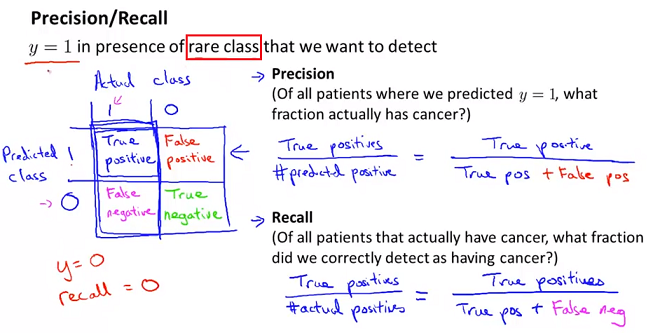 Precision/Recall
y = 1 in presence of rare class that we want to detect
Actual class
1 0
Predicted class
1 True positive False positive
0 False negative True negative
y = 0
recall = 0
→ Precision
(Of all patients where we predicted y = 1, what
fraction actually has cancer?)
True positives / #predicted positive = True positive / True pos + False pos
→ Recall
(Of all patients that actually have cancer, what fraction
did we correctly detect as having cancer?)
True positives / #actual positives = True positives / True pos + False neg